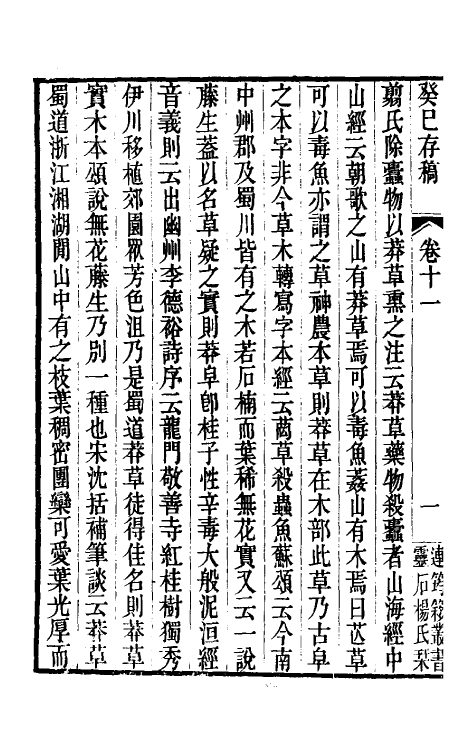 癸巳存稿 卷十一 一 連筠簃叢書 靈石楊氏栞
翦氏除蠹物以莽草熏之注云莽草藥物殺蠹者山海經中
山經云朝歌之山有莽草焉可以毒魚葌山有木焉曰芒草
可以毒魚亦謂之草神農本草則莽草在木部此草乃古皁
之本字非今草木轉寫字本經云䓯草殺蟲魚蘇頌云今南
中州郡及蜀川皆有之木若石楠而葉稀無花實又云一說
藤生蓋以名草疑之實則莽皁卽桂子性辛毒大般泥洹經
音義則云出幽州李德裕詩序云龍門敬善寺紅桂樹獨秀
伊川移植郊園眾芳色沮乃是蜀道莽草徒得佳名則莽草
實木本頌說無花藤生乃別一種也宋沈括補筆談云莽草
蜀道浙江湘湖閒山中有之枝葉稠密團欒可愛葉光厚而